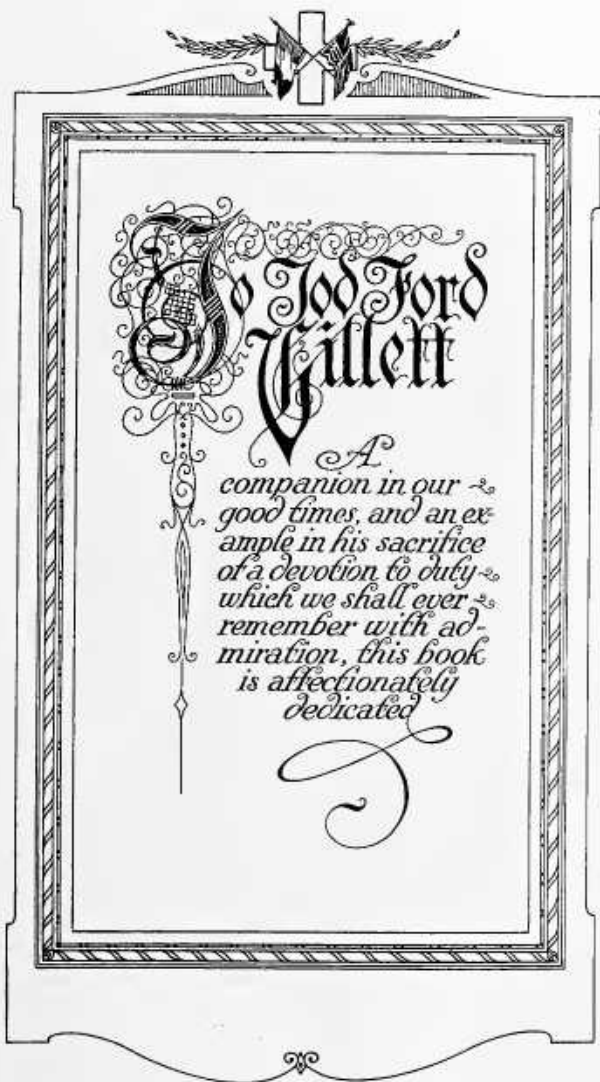 To Tod Ford
Gillett
A
companion in our
good times, and an ex-
ample in his sacrifice
of a devotion to duty
which we shall ever
remember with ad-
miration, this book
is affectionately
dedicated